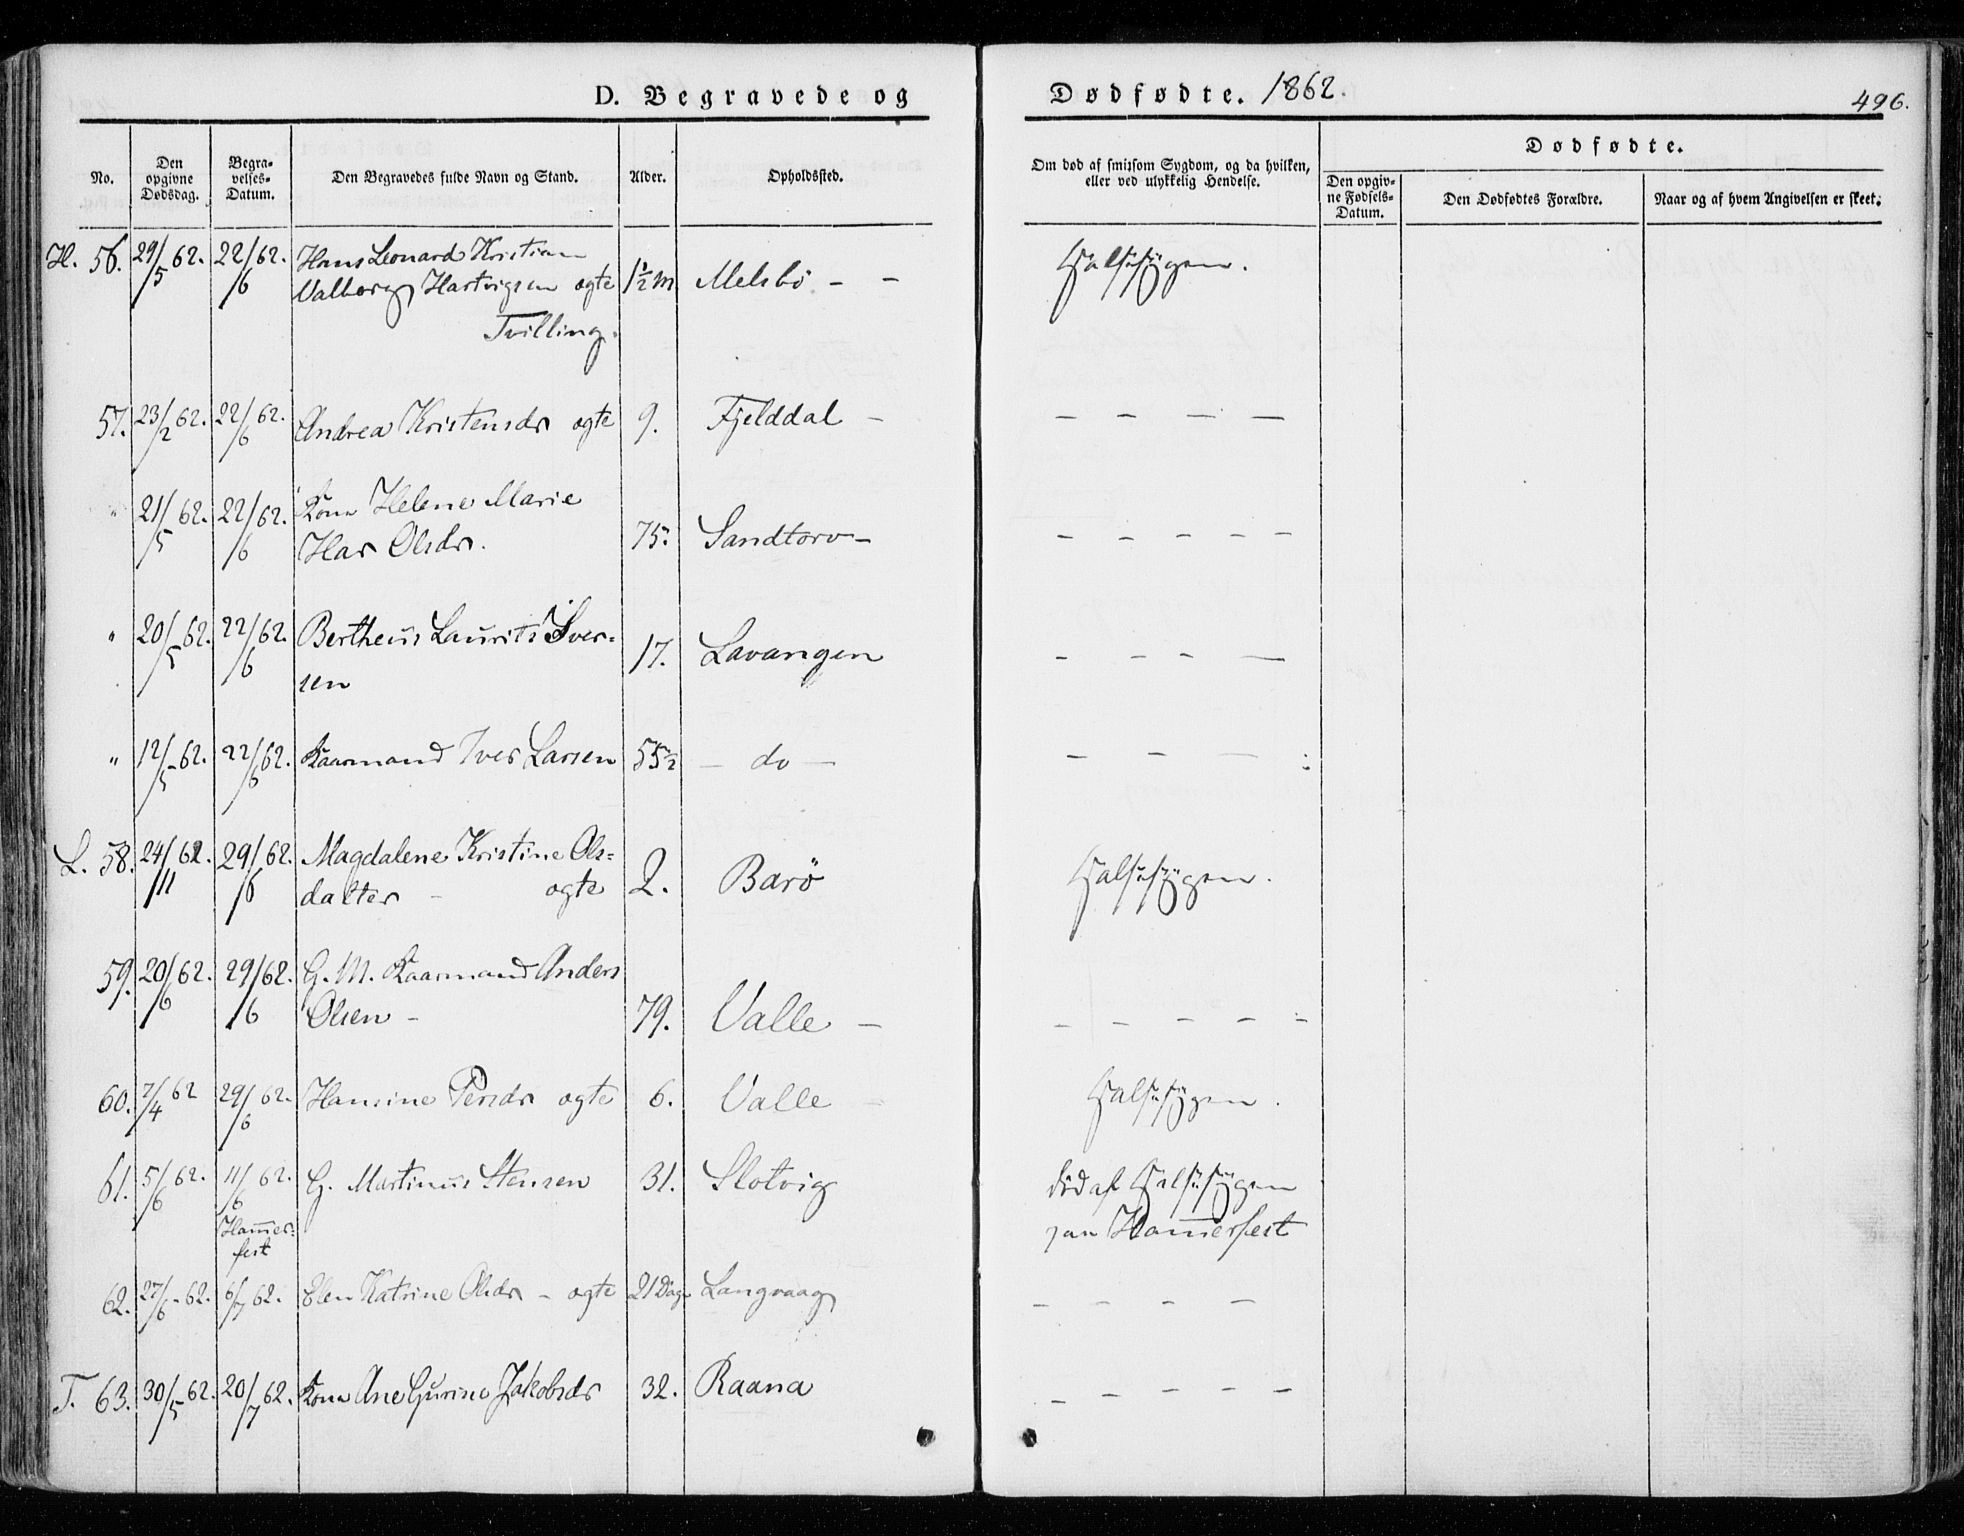 D. Begravede og
Dødfødte. 1862.
496.
No.
Den opgivne Dødsdag.
Begravelses-Datum.
Den Begravedes fulde Navn og Stand.
Alder.
Opholdssted.
Om død af smitsom Sygdom, og da hvilken,
eller ved ulykkelig Hendelse.
Dødfødte.
Den opgivne Fødsels-Datum.
Den Dødfødtes Forældre.
Naar og af hvem Angivelsen er skeet.
H. 56. 29/5 62. 22/6 62. Hans Leonard Kristian
Valborg Hartvigsen ægte 1½ m Melsbö - - Halssÿgen.
Tvilling.
57. 23/2 62. 22/6 62. Andrea Kristensdr ægte 9. Fjelddal - — — — —
" 21/5 62. 22/6 62. Kone Helene Marie
Har Olsdr. 75. Sandtorv - — — — — —
" 20/5 62. 22/6 62. Bertheus Laurits Iver=
sen 17. Lavangen — — — —
" 12/5 62. 22/6 62. Kaarmand Iver Larsen 55½ — do — — — —
L. 58. 24/11 62. 29/6 62. Magdalene Kristine Ols=
datter - ægte 2. Barö Halssÿgen.
59. 20/6 62. 29/6 62. G. M. Kaarmand Anders
Olsen - 79. Valle — — — — — —
60. 7/4 62 29/6 62. Hansine Persdr ægte 6. Valle Halssÿgen.
61. 5/6 62. 11/6 62. G. Martinus Stensen 31. Slotvig död af Halssÿgen
Ham̄er=
fest
paa Ham̄erfest
62. 27/6 62. 6/7 62. Elen Katrine Olsdr - ægte 21 Dage Langvaag — — — —
T. 63. 30/5 62. 20/7 62. Kone Ane Gurine Jakobsdr 32. Raana — — — — —